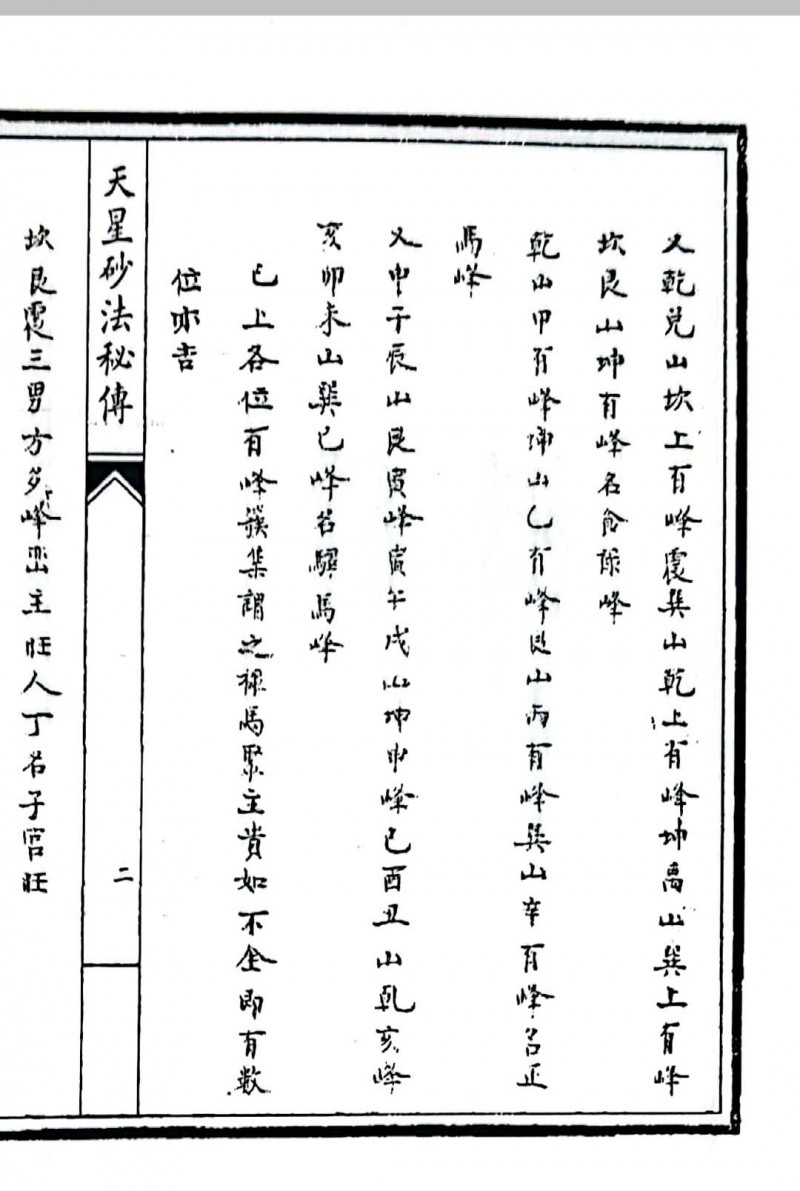 又乾兑山坎上有峰震巽山乾上有峰坤离山巽上有峰
坎艮山坤有峰名食祿峰
乾山甲有峰坤山乙有峰艮山丙有峰巽山辛有峰名正
馬峰
又申子辰山艮寅峰寅午戌山坤申峰巳酉丑山乾亥峰
亥卯未山巽巳峰名驛馬峰
已上各位有峰簇集謂之祿馬聚主貴如不全即有数
位亦吉
天星砂法秘傳
二
坎艮震三男方多峰巒主旺人丁名子宫旺